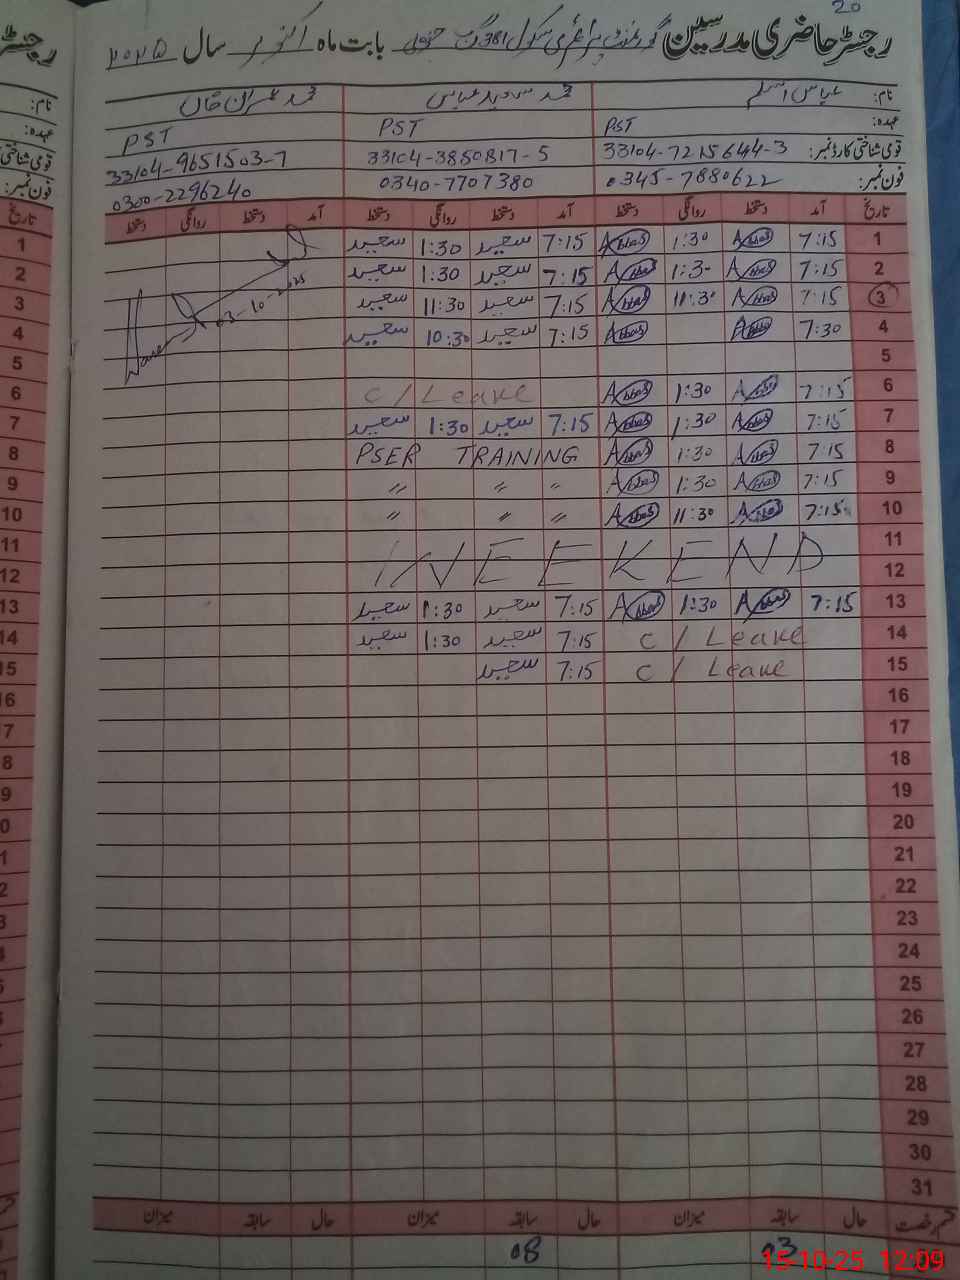 20
رجسٹر حاضری مدرسین گورنمنٹ پرائمری سکول 381 گ ب بابت ماہ اکتوبر سال ۲۰۲۵
نام: عباس اسلم محمد سعید عباس محمد عمران خاں
عہدہ: PST PST PST
قومی شناختی کارڈ نمبر: 33104-7215644-3 33104-3850817-5 33104-9651503-7
فون نمبر: 0345-7880622 0340-7707380 0300-2296240
تاریخ آمد دستخط روانگی دستخط آمد دستخط روانگی دستخط آمد دستخط روانگی دستخط
1 7:15 Abbas 1:30 Abbas 7:15 سعید 1:30 سعید
2 7:15 Abbas 1:3- Abbas 7:15 سعید 1:30 سعید
3 7:15 Abbas 11:30 Abbas 7:15 سعید 11:30 سعید 03-10-2025
4 7:30 Abbas Abbas 7:15 سعید 10:30 سعید
5
6 7:15 Abbas 1:30 Abbas C/Leave
7 7:15 Abbas 1:30 Abbas 7:15 سعید 1:30 سعید
8 7:15 Abbas 1:30 Abbas PSER TRAINING
9 7:15 Abbas 1:30 Abbas 〃 〃 〃
10 7:15 Abbas 11:30 Abbas 〃 〃 〃
11 WEEKEND
12
13 7:15 Abbas 1:30 Abbas 7:15 سعید 1:30 سعید
14 C/Leave 7:15 سعید 1:30 سعید
15 C/Leave 7:15 سعید
16
17
18
19
20
21
22
23
24
25
26
27
28
29
30
31
قسم رخصت حال سابقہ میزان حال سابقہ میزان حال سابقہ میزان
03 08
15-10-25 12:09